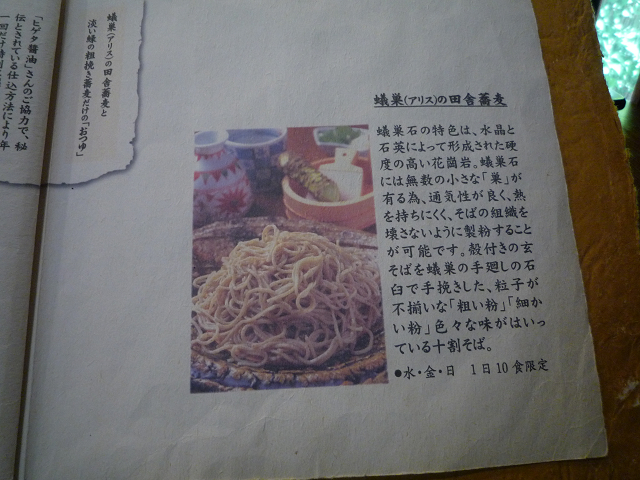 蟻巣(アリス)の田舎蕎麦
蟻巣石の特色は、水晶と
石英によって形成された硬
度の高い花崗岩。蟻巣石
には無数の小さな「巣」が
有る為、通気性が良く、熱
を持ちにくく、そばの組織を
壊さないように製粉すること
が可能です。殻付きの玄
そばを蟻巣の手廻しの石
臼で手挽きした、粒子が
不揃いな「粗い粉」「細か
い粉」色々な味がはいっ
ている十割そば。
●水・金・日 1日10食限定
蟻巣(アリス)の田舎蕎麦と
淡い緑の粗挽き蕎麦だけの「おつゆ」
「ヒゲタ醤油」さんのご協力で、秘
伝とされている仕込方法により年